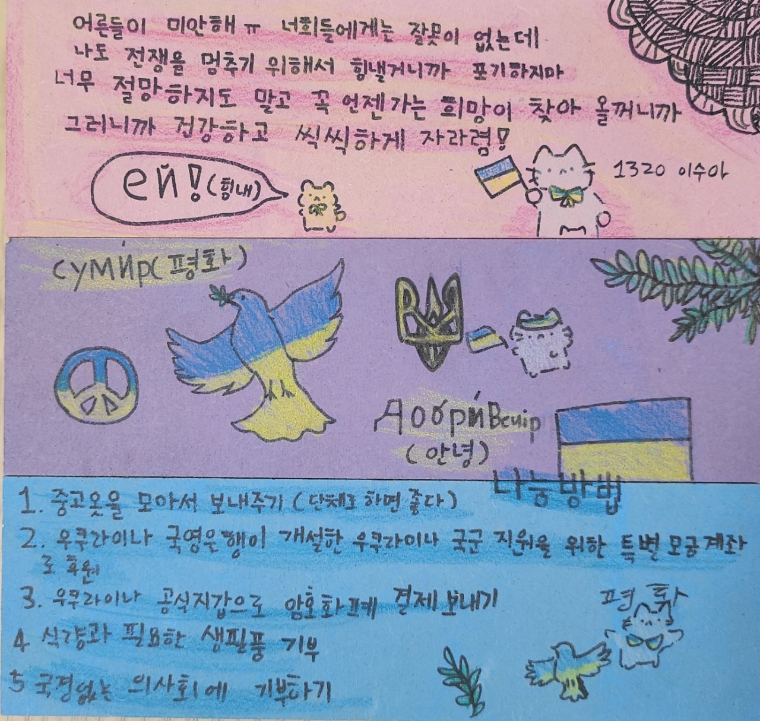 어른들이 미안해ㅠ 너희들에게는 잘못이 없는데
나도 전쟁을 멈추기 위해서 힘낼거니까 포기하지마
너무 절망하지도 말고 꼭 언젠가는 희망이 찾아 올꺼니까
그러니까 건강하고 씩씩하게 자라렴!
ей!(힘내)
1320 이수아
сумир(평화)
Добрий Вечір
(안녕)
나눔방법
1. 중고옷을 모아서 보내주기 (단체로 하면 좋다)
2. 우쿠라이나 국영은행이 개설한 우쿠라이나 국군 지원을 위한 특별 모금계좌
로 후원
3. 우쿠라이나 공식지갑으로 암호화폐 결제 보내기
4 식량과 필요한 생필품 기부
5 국경없는 의사회에 기부하기
평화